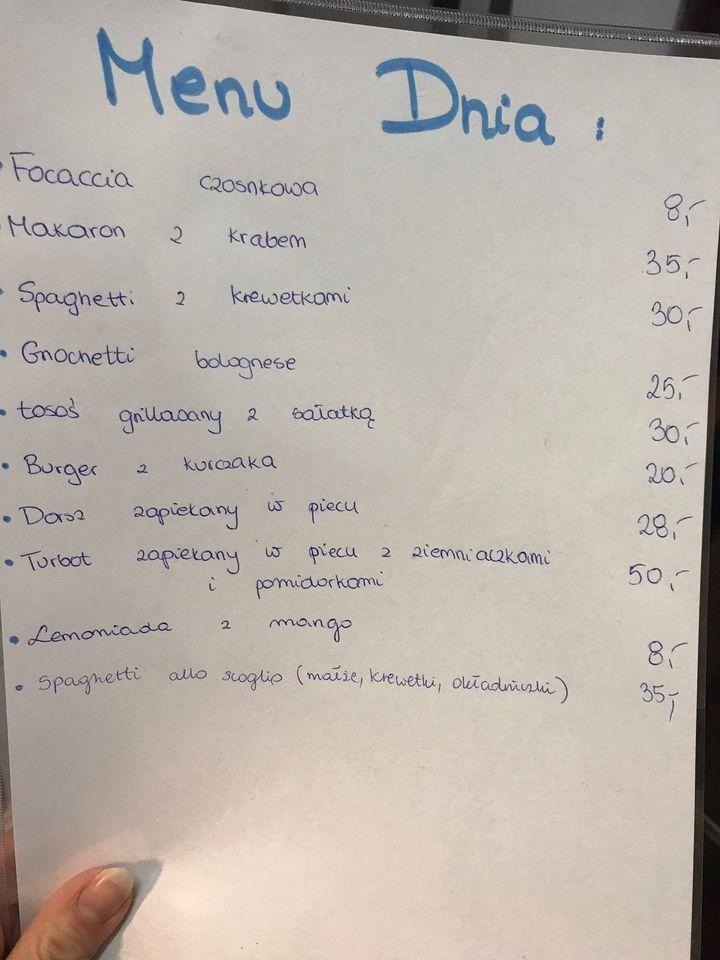 Menu Dnia :
• Focaccia czosnkowa 8,-
Makaron z krabem 35,-
• Spaghetti z krewetkami 30,-
• Gnochetti bolognese 25,-
• Łosoś grillowany z sałatką 30,-
• Burger z kurczaka 20,-
• Dorsz zapiekany w piecu 28,-
• Turbot zapiekany w piecu z ziemniaczkami 50,-
i pomidorkami
• Lemoniada z mango 8,-
• Spaghetti allo scoglio (małże, krewetki, okładniczki) 35,-